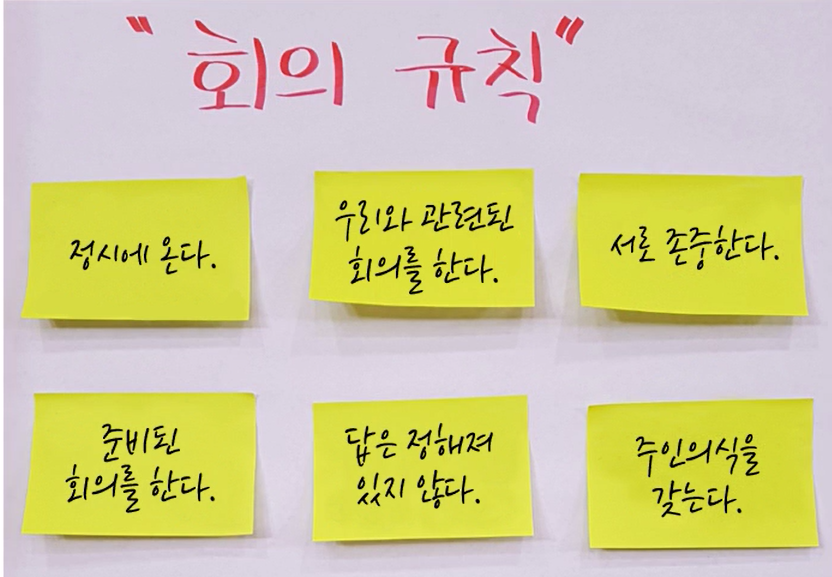 "회의 규칙"
정시에 온다.
우리와 관련된
회의를 한다.
서로 존중한다.
준비된
회의를 한다.
답은 정해져
있지 않다.
주인의식을
갖는다.